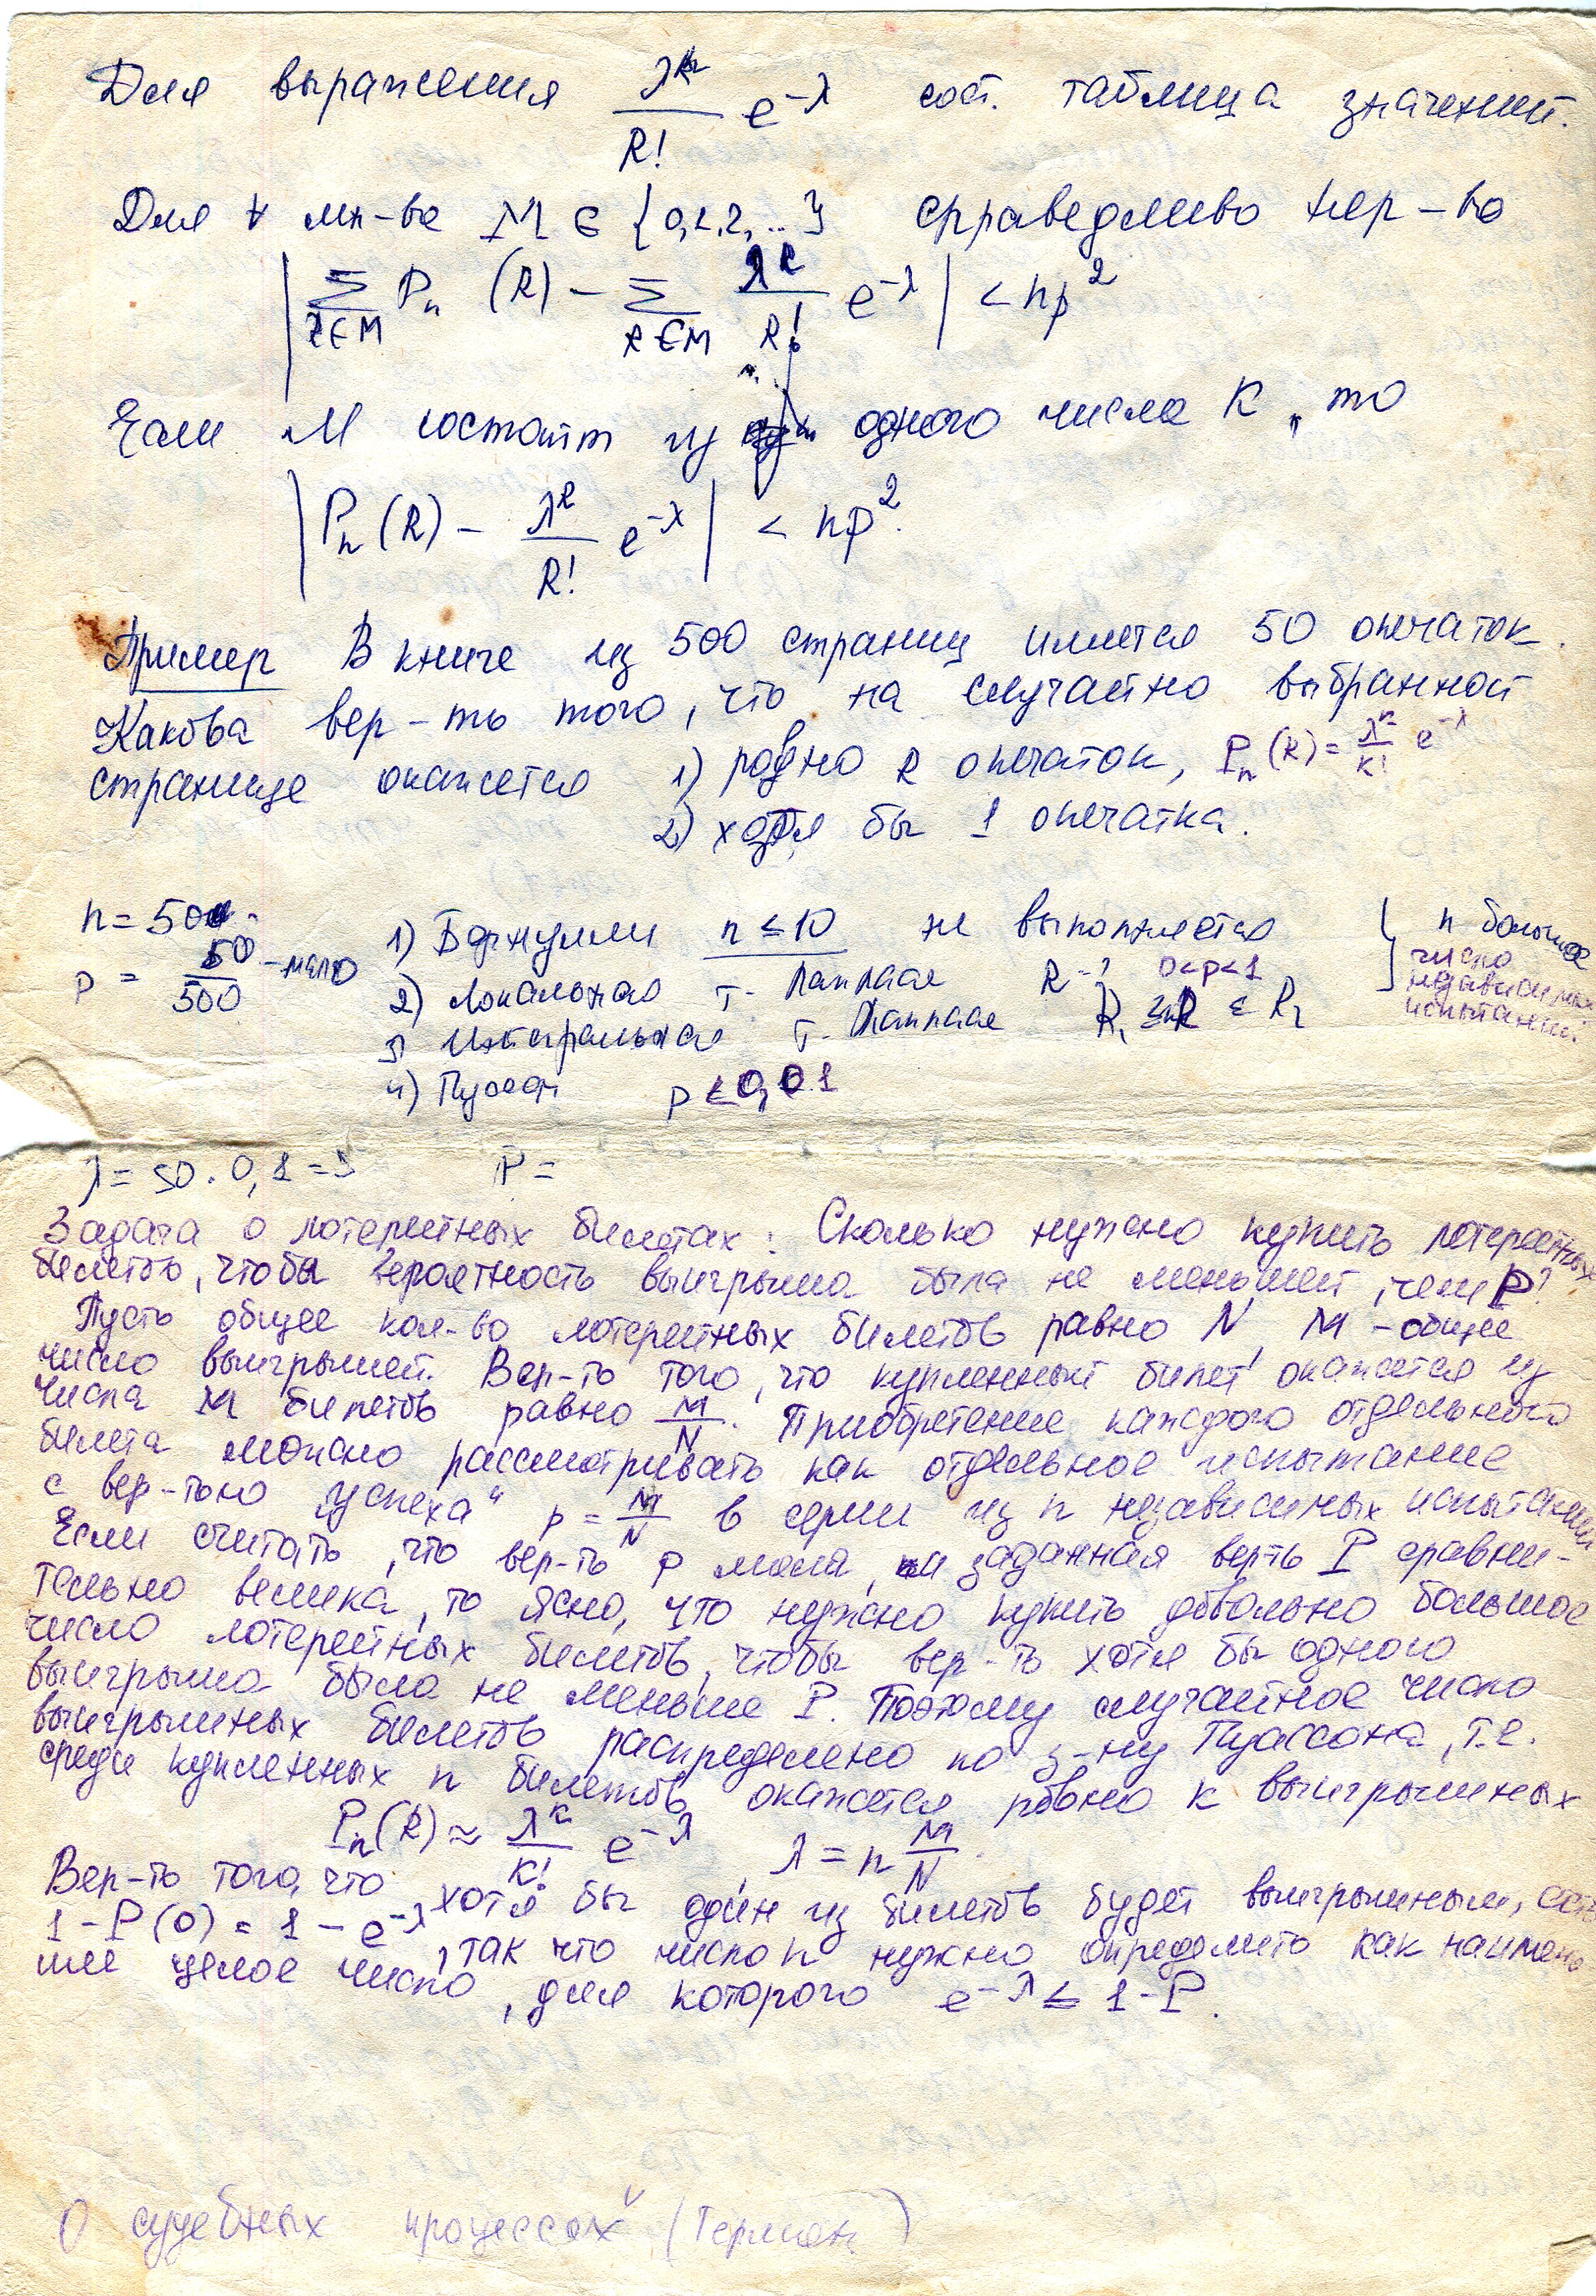 Для выражения λᵏ/k! e^-λ сост. таблица значений.
Для ∀ мн-ва M ∈ {0,1,2,...} справедливо нер-во
| Σ_{k∈M} Pₙ(k) - Σ_{k∈M} λᵏ/k! e^-λ | < np²
Если M состоит из одного числа k, то
| Pₙ(k) - λᵏ/k! e^-λ | < np².
Пример В книге из 500 страниц имеется 50 опечаток.
Какова вер-ть того, что на случайно выбранной
странице окажется 1) ровно k опечаток, Pₙ(k) = λᵏ/k! e^-λ
2) хотя бы 1 опечатка.
n = 50
p = 50/500 - мало
1) Бернулли n ≤ 10 не выполняется
2) Локальная т. Лапласа k - ? 0<p<1
3) Интегральная т. Лапласа k₁ ≤ k ≤ k₂
4) Пуассон p < 0,01
n большое
число
независимых
испытаний.
λ = 50 · 0,1 = 5 P =
Задача о лотерейных билетах: Сколько нужно купить лотерейных
билетов, чтобы вероятность выигрыша была не меньшей, чем P?
Пусть общее кол-во лотерейных билетов равно N, M - общее
число выигрышей. Вер-ть того, что купленный билет окажется из
числа M билетов равно M/N. Приобретение каждого отдельного
билета можно рассматривать как отдельное испытание
с вер-тью „успеха“ p = M/N в серии из n независимых испытаний
Если считать, что вер-ть p мала, и заданная верть P сравни-
тельно велика, то ясно, что нужно купить довольно большое
число лотерейных билетов, чтобы вер-ть хотя бы одного
выигрыша была не меньше P. Поэтому случайное число
выигрышных билетов распределено по з-ну Пуассона, т.е.
среди купленных n билетов окажется ровно k выигрышных
Pₙ(k) ≈ λᵏ/k! e^-λ λ = n M/N.
Вер-ть того, что хотя бы один из билетов будет выигрышным, есть
1 - P(0) = 1 - e^-λ, так что число n нужно определить как наимень
шее целое число, для которого e^-λ ≤ 1 - P.
О судебных процессах (Герман)